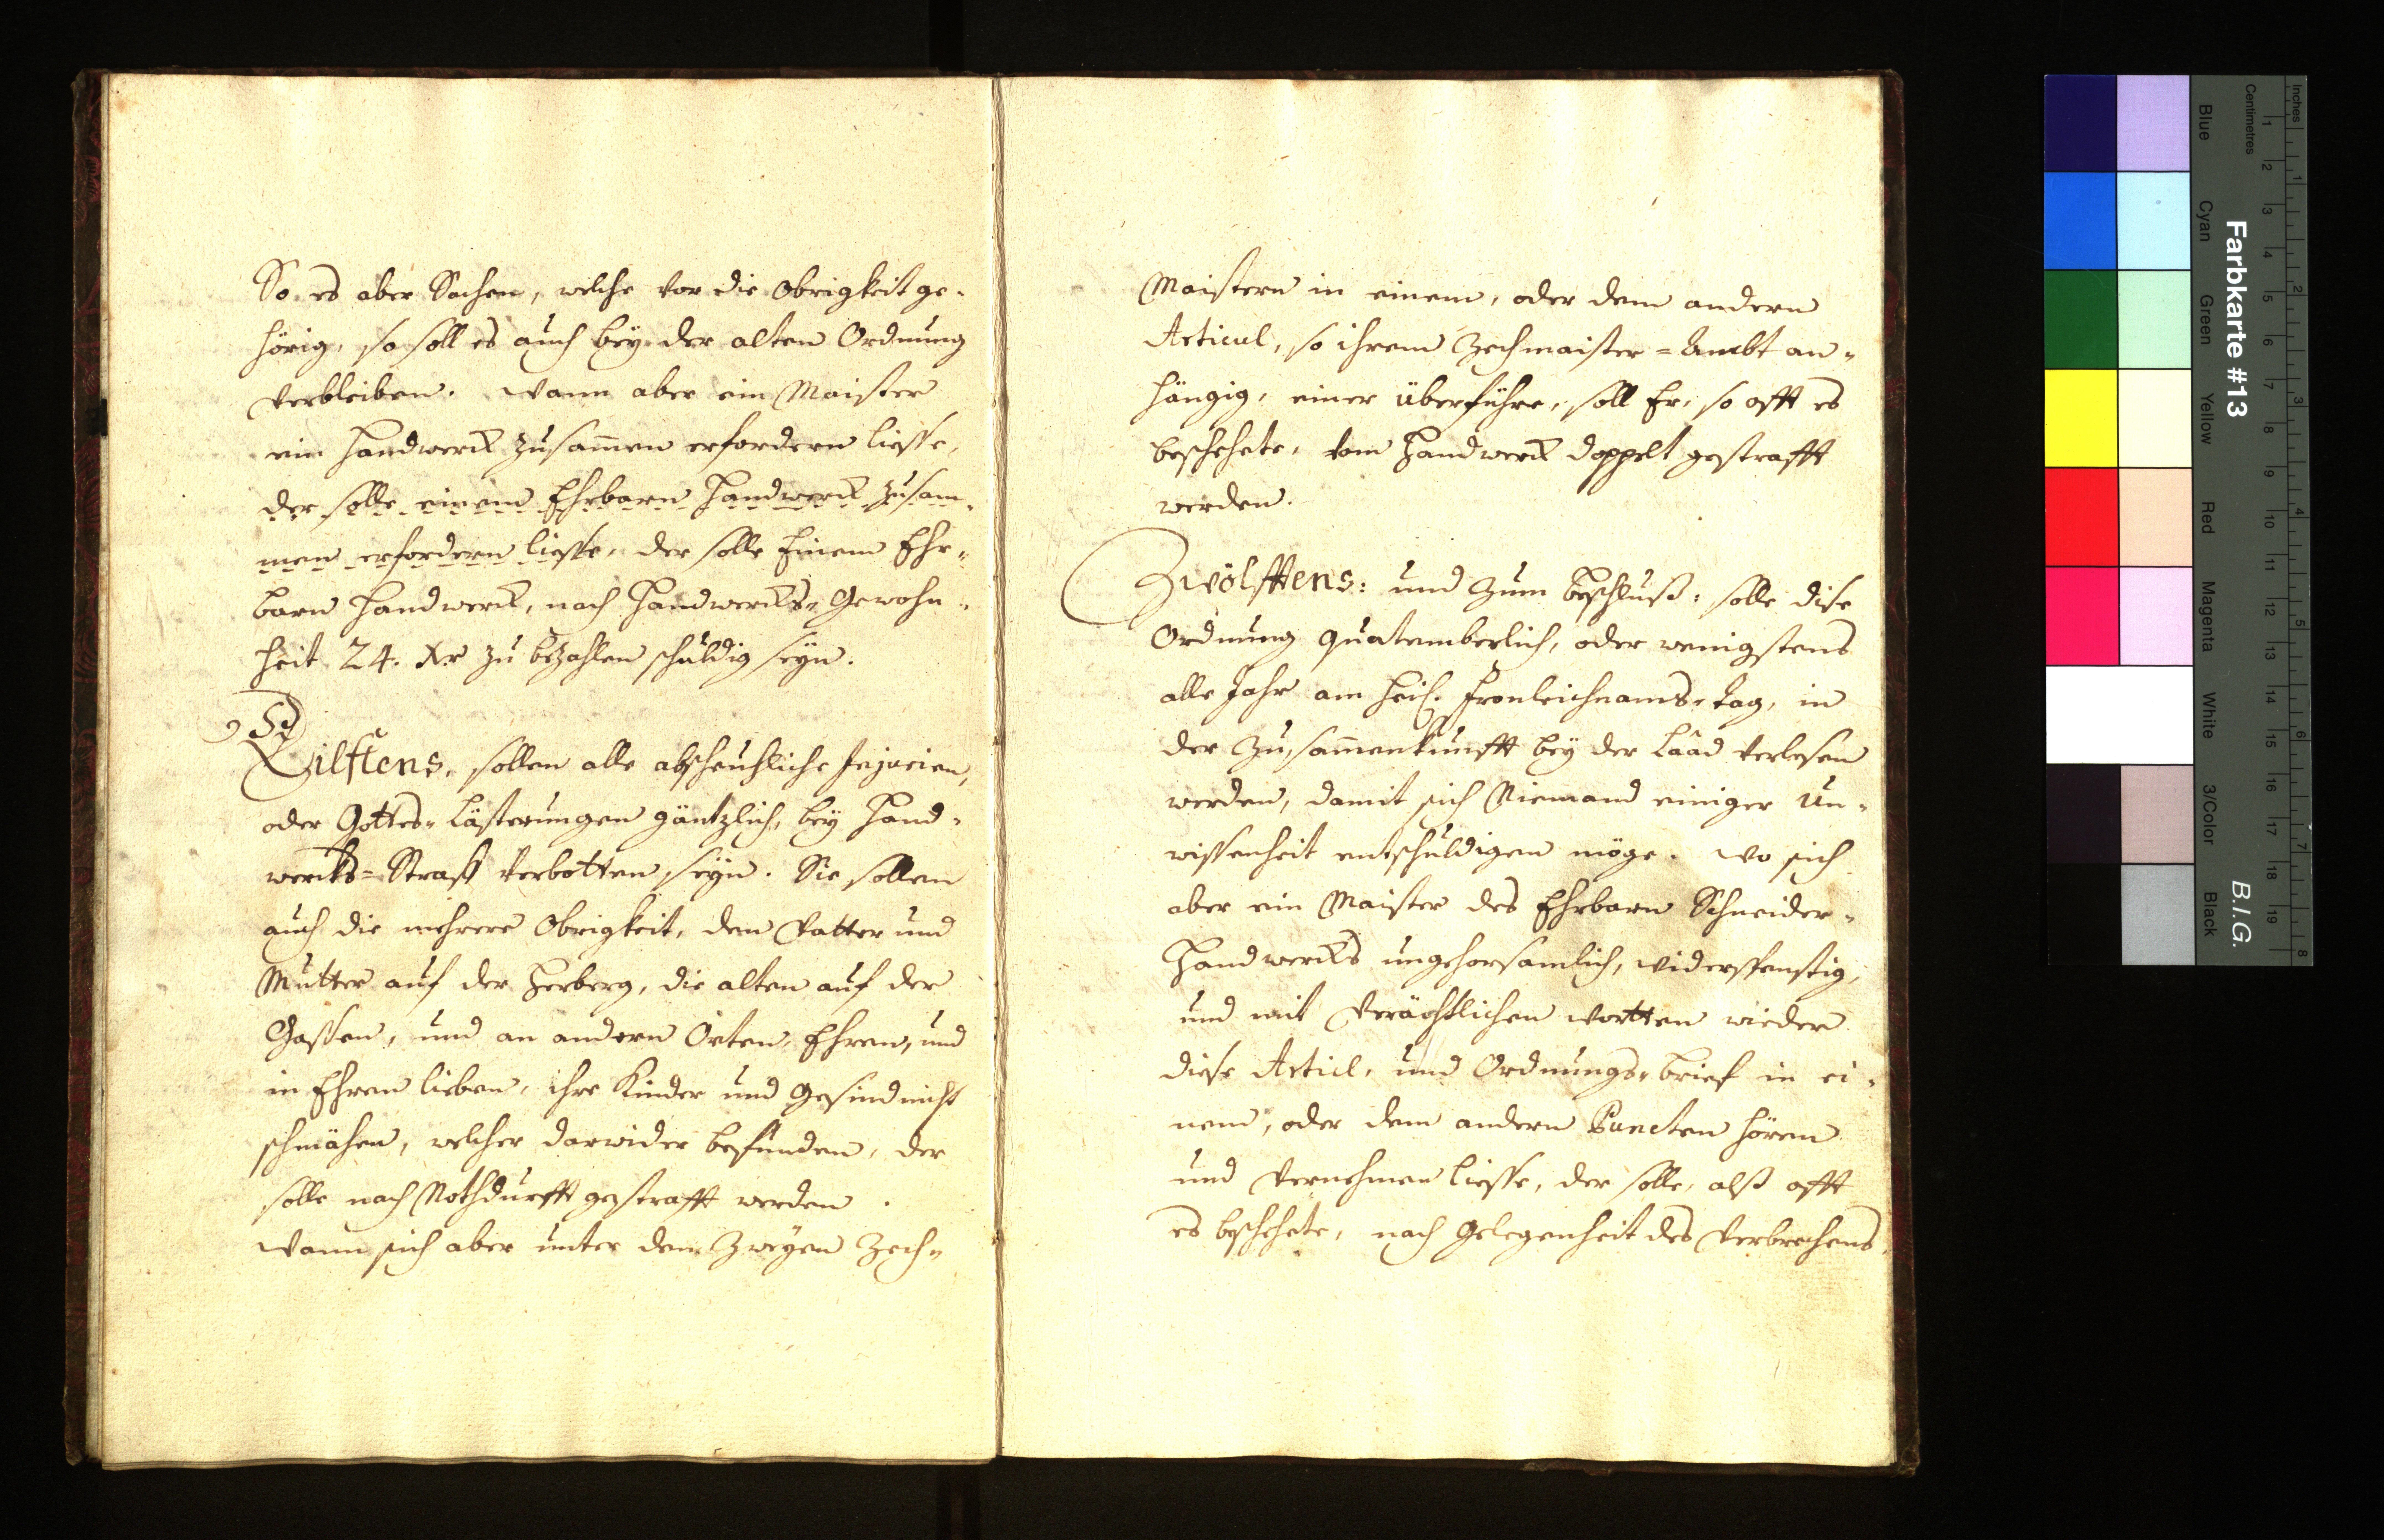 So es aber Sachen, welche vor die Obrigkeit ge-
hörig, so soll es auch bey der alten Ordnung
verbleiben. Wann aber ein Maister
ein Handwerck zusam̄en erfordern liesse,
der solle einem Ehrbarn Handwerck zusam-
men erfordern liesse, der solle Einem Ehr-
barn Handwerck, nach Handwercks-Gewohn-
heit 24. Xr zu bezahlen schuldig seyn.
Eilftens, sollen alle abscheuhliche Injurien,
oder Gottes-Lästerungen gäntzlich, bey Hand-
wercks=Straff verbotten seyn. Sie sollen
auch die mehrere Obrigkeit, den Vatter und
Mutter auf der Herberg, die alten auf der
Gassen, und an andern Orten, Ehren, und
in Ehren lieben, ihre Kinder und Gesind nicht
schmähen, welcher darwider befunden, der
solle nach Nothdurfft gestrafft werden.
Wann sich aber unter den zweyen Zech-
Maistern in einem, oder dem andern
Articul, so ihrem Zechmaister=Ambt an-
hängig, einer überführe, soll Er, so offt es
beschehete, vom Handwerck doppelt gestrafft
werden.
Zwölfftens: und zum Beschluß: solle dise
Ordnung quatemberlich, oder wenigstens
alle Jahr am heil. Fronleichnams-Tag, in
der Zusam̄enkunfft bey der Laad verlesen
werden, damit sich Niemand einiger Un-
wissenheit entschuldigen möge. Wo sich
aber ein Maister des Ehrbarn Schneider-
Handwercks ungehorsamlich, widerspenstig,
und mit verächtlichen Wortten wieder
diese Articl, und Ordnungs-brief in ei-
nem, oder dem andern Puncten hören
und vernehmen liesse, der solle, alß offt
es beschehete, nach Gelegenheit des Verbrechens,
Inches
Centimetres
Farbkarte #13
B.I.G.
Blue
Cyan
Green
Yellow
Red
Magenta
White
3/Color
Black
1 2 3 4 5 6 7 8 9 10 11 12 13 14 15 16 17 18 19
1 2 3 4 5 6 7 8